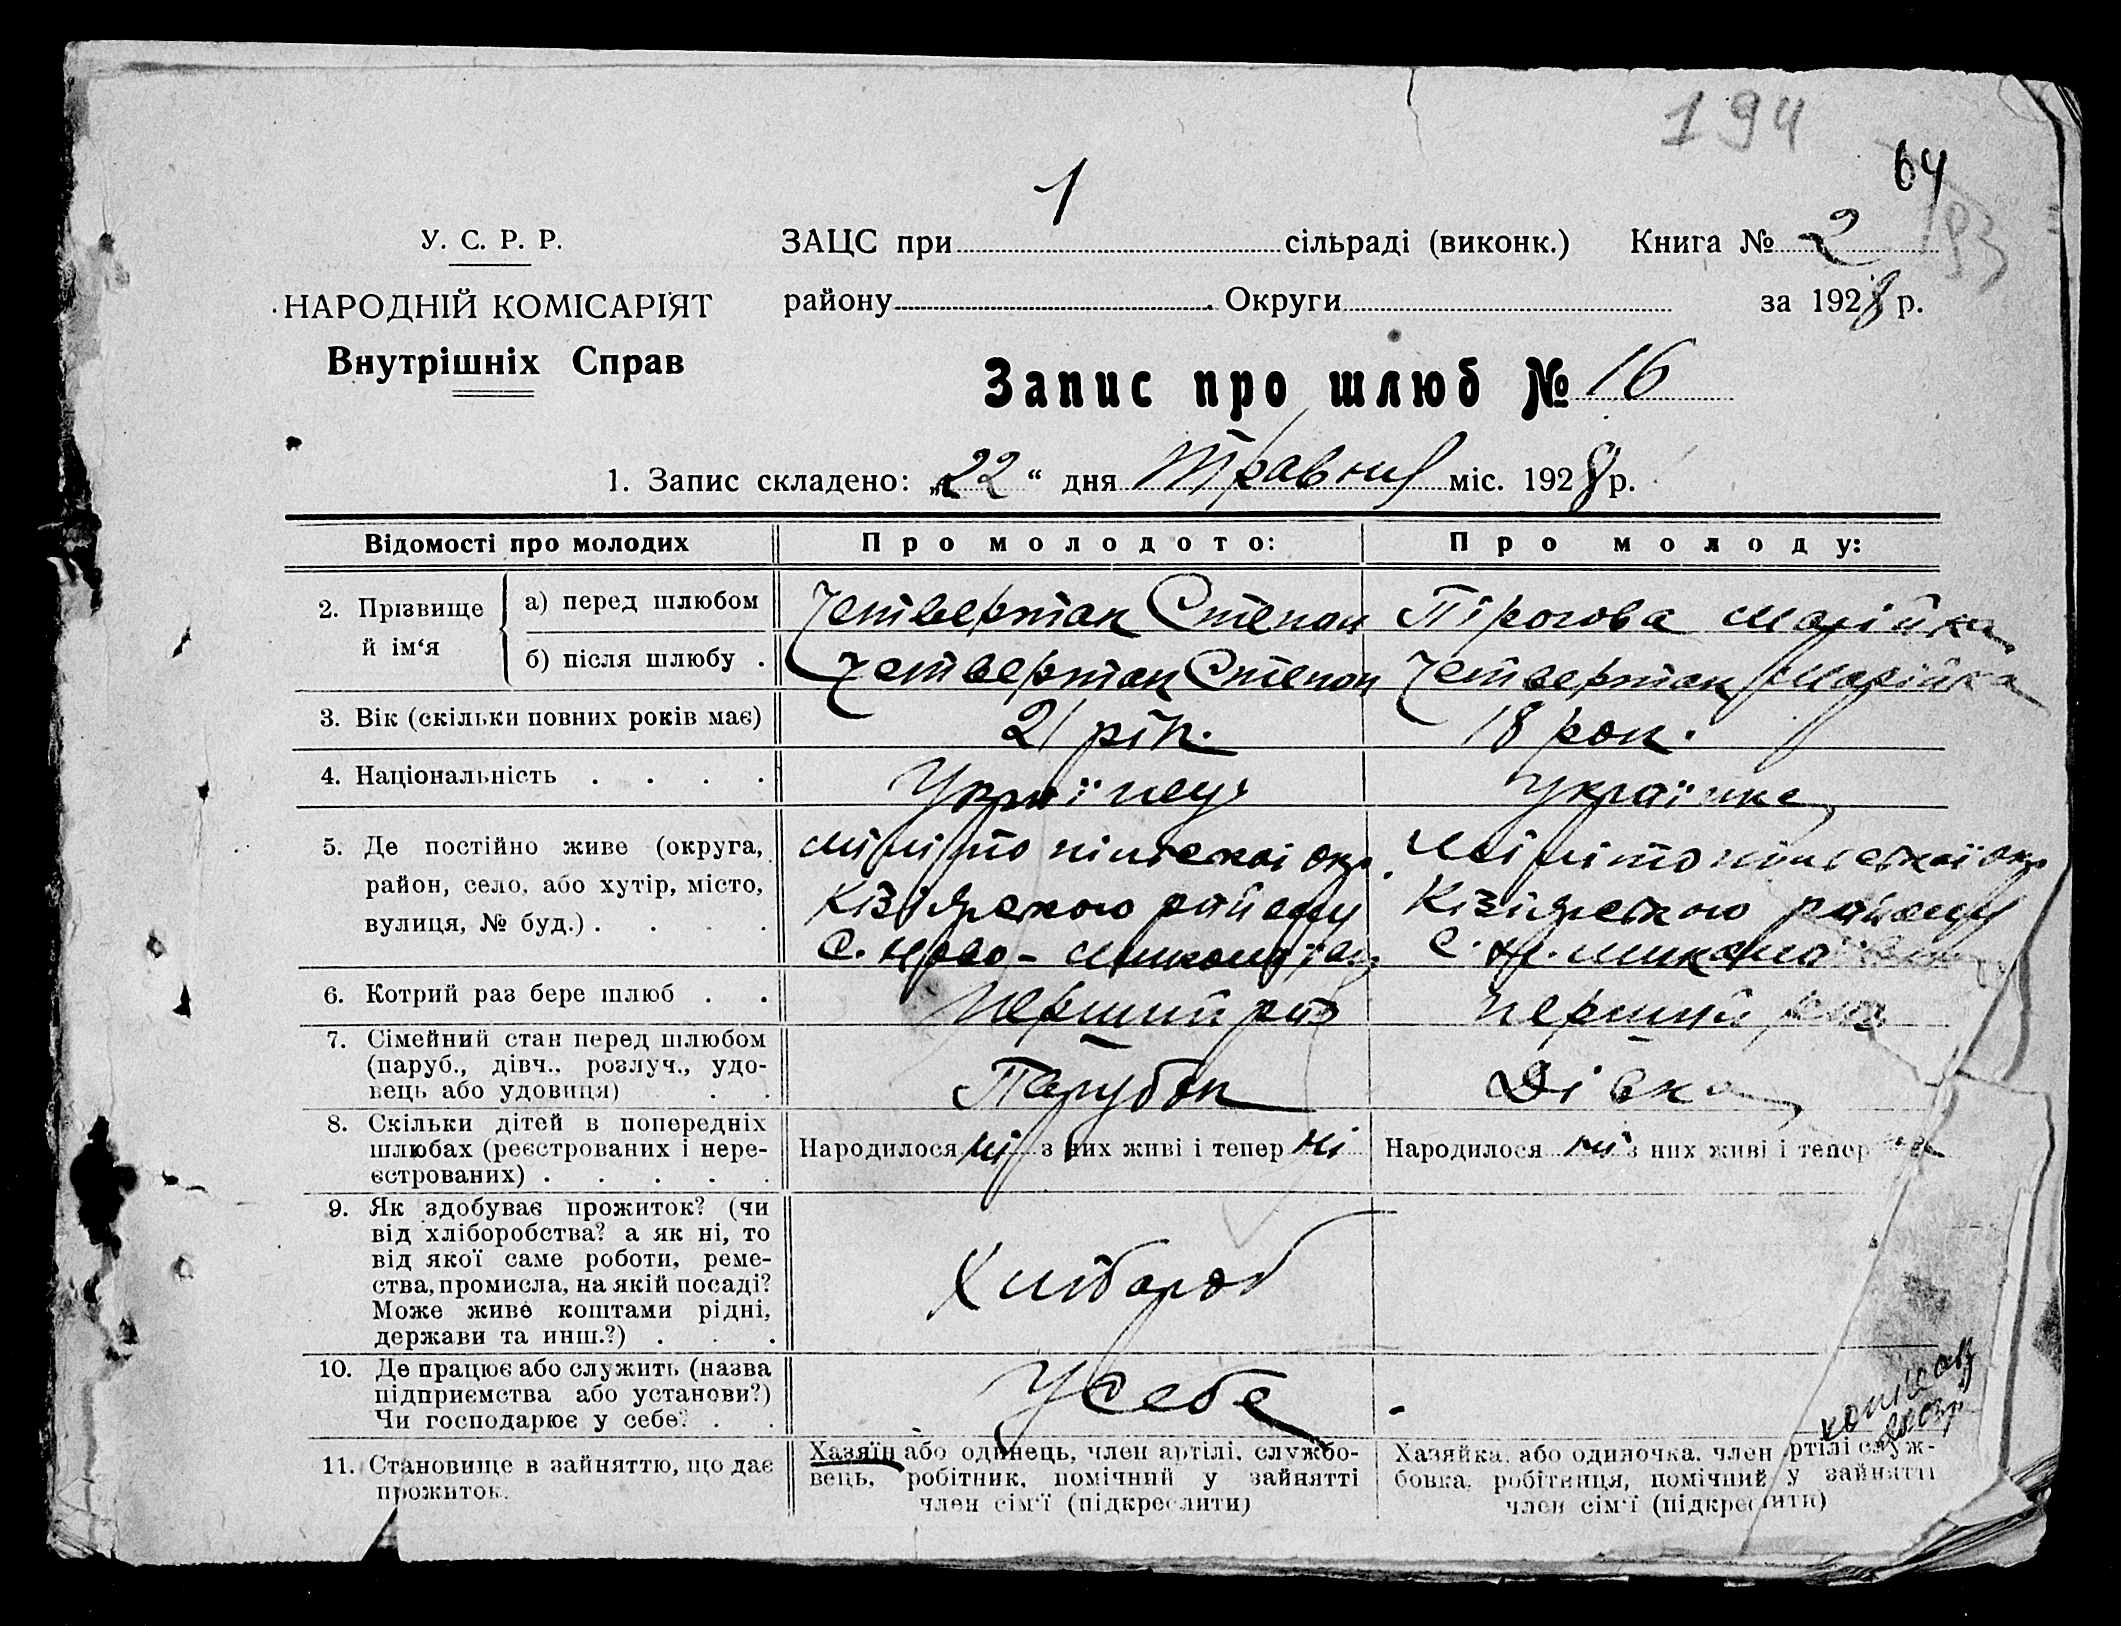 194
64
193
1
У. С. Р. Р.
ЗАЦС при сільраді (виконк.) Книга № 2
НАРОДНІЙ КОМІСАРІЯТ
району Округи за 1928 р.
Внутрішніх Справ
Запис про шлюб № 16
1. Запис складено: „22“ дня Травня міс. 1928 р.
Відомості про молодих
Про молодого:
Про молоду:
2. Прізвище й ім‘я
а) перед шлюбом
Четвертак Степан
Пірогова Марійка
б) після шлюбу .
Четвертак Степан
Четвертак Марійка
3. Вік (скільки повних років має)
21 рік.
18 рок.
4. Національність . . . .
Українець
Українка
5. Де постійно живе (округа,
район, село, або хутір, місто,
вулиця, № буд.) . . . .
Мілітопільскої окр.
Кізіярского району
С. Ново-Миколаївц
Мілітопільскої окр
Кізіярского району
С. Н. Миколаївц
6. Котрий раз бере шлюб . .
Перший раз
перший раз
7. Сімейний стан перед шлюбом
(паруб., дівч., розлуч., удо-
вець або удовиця) . .
Парубок
Дівка
8. Скільки дітей в попередніх
шлюбах (реєстрованих і нере-
єстрованих) . . . . .
Народилося ні з них живі і тепер ні
Народилося ні з них живі і тепер
9. Як здобуває прожиток? (чи
від хліборобства? а як ні, то
від якої саме роботи, реме-
ства, промисла, на якій посаді?
Може живе коштами рідні,
держави та инш.?) . . .
Хлібороб
10. Де працює або служить (назва
підприємства або установи?)
Чи господарює у себе? . .
У себе
11. Становище в зайняттю, що дає
прожиток.
Хазяїн або одинець, член артілі, службо-
вець, робітник, помічний у зайнятті
член сім‘ї (підкреслити)
Хазяйка, або одиночка, член ртілі служ-
бовка, робітниця, помічний у зайнятті
член сім‘ї (підкреслити)